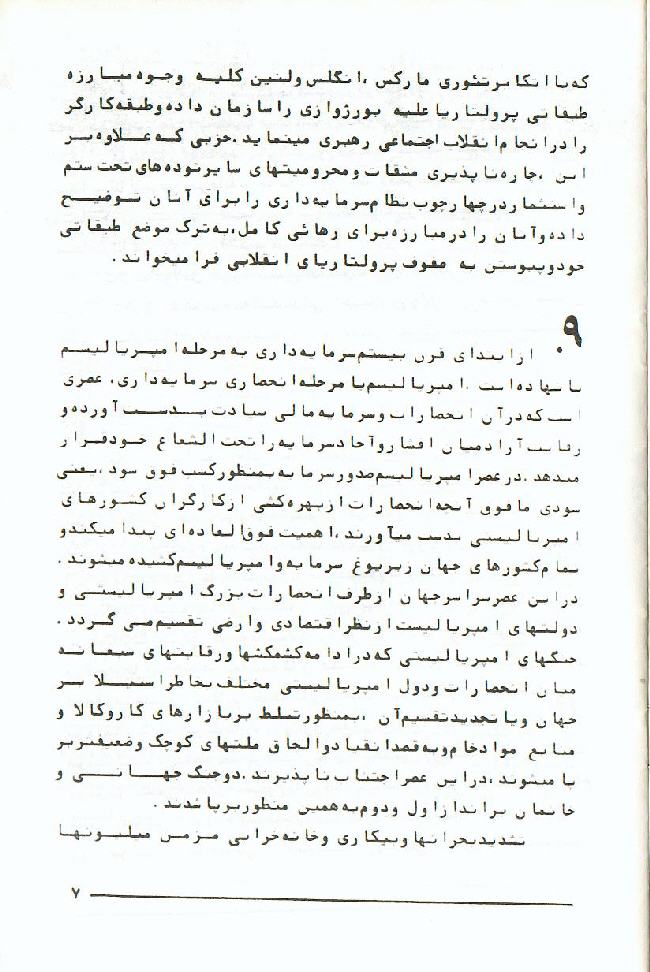 که با اتکا بر تئوری مارکس ، انگلس و لنین کلیه وجوه مبارزه
طبقاتی پرولتاریا علیه بورژوازی را سازمان داده و طبقه کارگر
را در انجام انقلاب اجتماعی رهبری مینماید . حزبی که علاوه بر
این ، چاره ناپذیری مشقات و محرومیتهای سایر توده های تحت ستم
و استثمار در چهارچوب نظام سرمایه داری را برای آنان توضیح
داده و آنان را در مبارزه برای رهائی کامل ، به ترک موضع طبقاتی
خود و پیوستن به صفوف پرولتاریای انقلابی فرا میخواند .
۹.
از ابتدای قرن بیستم سرمایه داری به مرحله امپریالیسم
پا نهاده است . امپریالیسم یا مرحله انحصاری سرمایه داری ، عصری
است که در آن انحصارات و سرمایه مالی سیادت بدست آورده و
رقابت آزاد میان اقشار و آحاد سرمایه را تحت الشعاع خود قرار
میدهد . در عصر امپریالیسم صدور سرمایه بمنظور کسب فوق سود ، یعنی
سودی مافوق آنچه انحصارات از بهره کشی از کارگران کشورهای
امپریالیستی بدست میآورند ، اهمیت فوق العاده ای پیدا میکند و
تمام کشورهای جهان زیر یوغ سرمایه و امپریالیسم کشیده میشوند .
در این عصر سراسر جهان از طرف انحصارات بزرگ امپریالیستی و
دولتهای امپریالیست از نظر اقتصادی و ارضی تقسیم می گردد .
جنگهای امپریالیستی که در ادامه کشمکشها و رقابتهای سبعانه
میان انحصارات و دول امپریالیستی مختلف بخاطر استیلا بر
جهان و یا تجدید تقسیم آن ، بمنظور تسلط بر بازارهای کار و کالا و
منابع مواد خام و به قصد انقیاد و الحاق ملتهای کوچک و ضعیفتر بر
پا میشوند ، در این عصر اجتناب ناپذیرند . دو جنگ جهانی و
خانمان برانداز اول و دوم به همین منظور بر پا شدند .
تشدید بحرانها و بیکاری و خانه خرابی مزمن میلیونها
۷